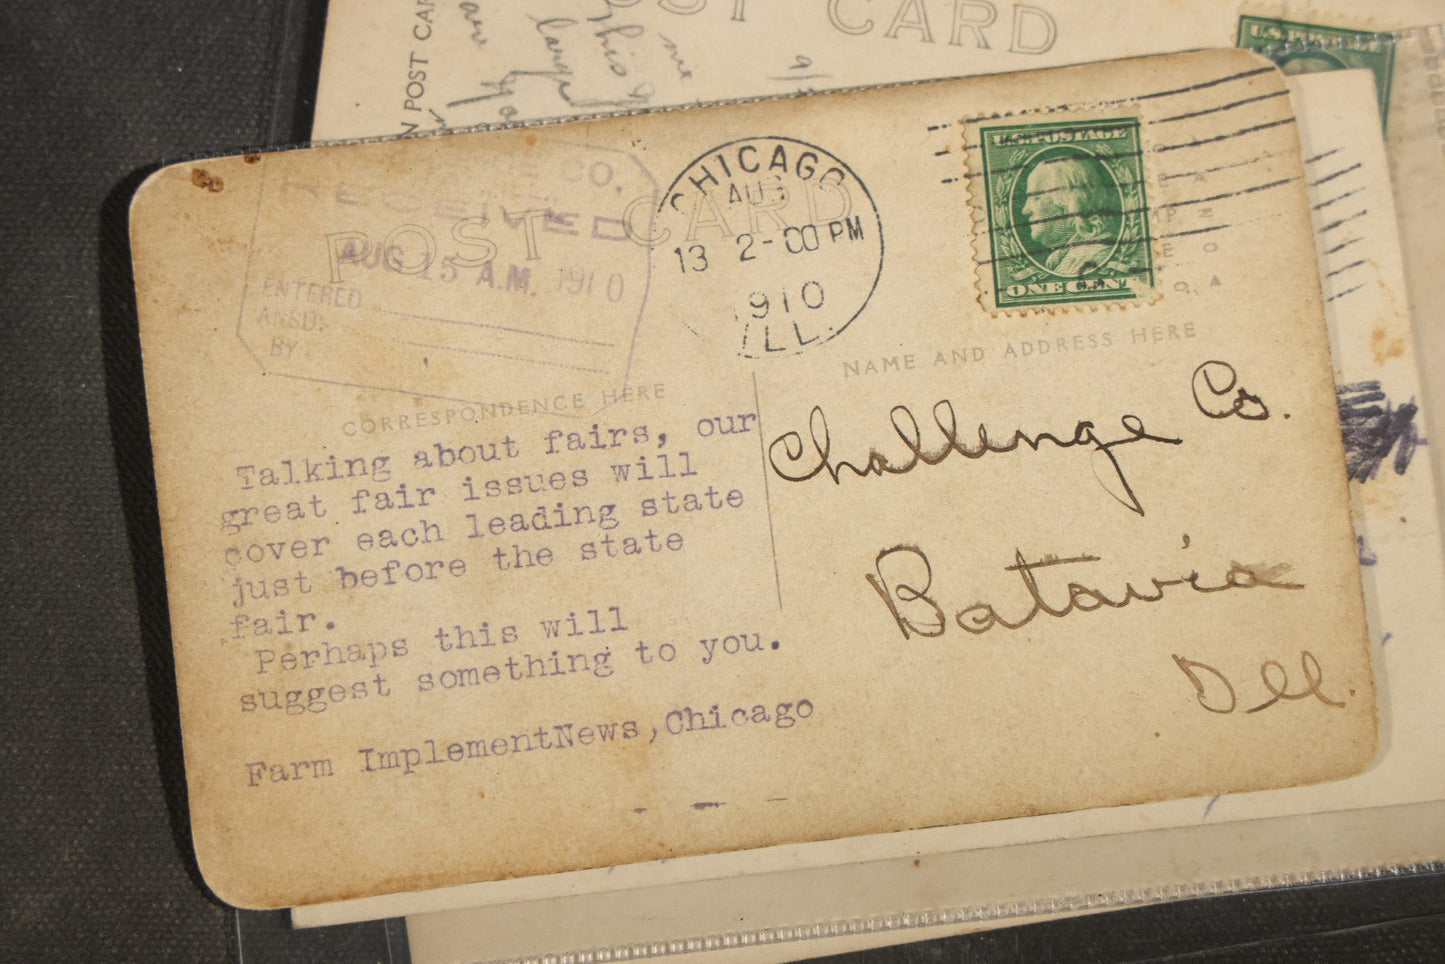 POST CARD
N POST CAR
this
U.S. POSTAGE
CO.
RECEIVED
AUG 15 A.M. 1910
ENTERED
ANSD.
BY
POST CARD
CHICAGO
AUG
13 2-00 PM
1910
ILL.
U.S. POSTAGE
ONE CENT
CORRESPONDENCE HERE
NAME AND ADDRESS HERE
Talking about fairs, our
great fair issues will
cover each leading state
just before the state
fair.
Perhaps this will
suggest something to you.
Farm ImplementNews,Chicago
Challenge Co.
Batavia
Ill.